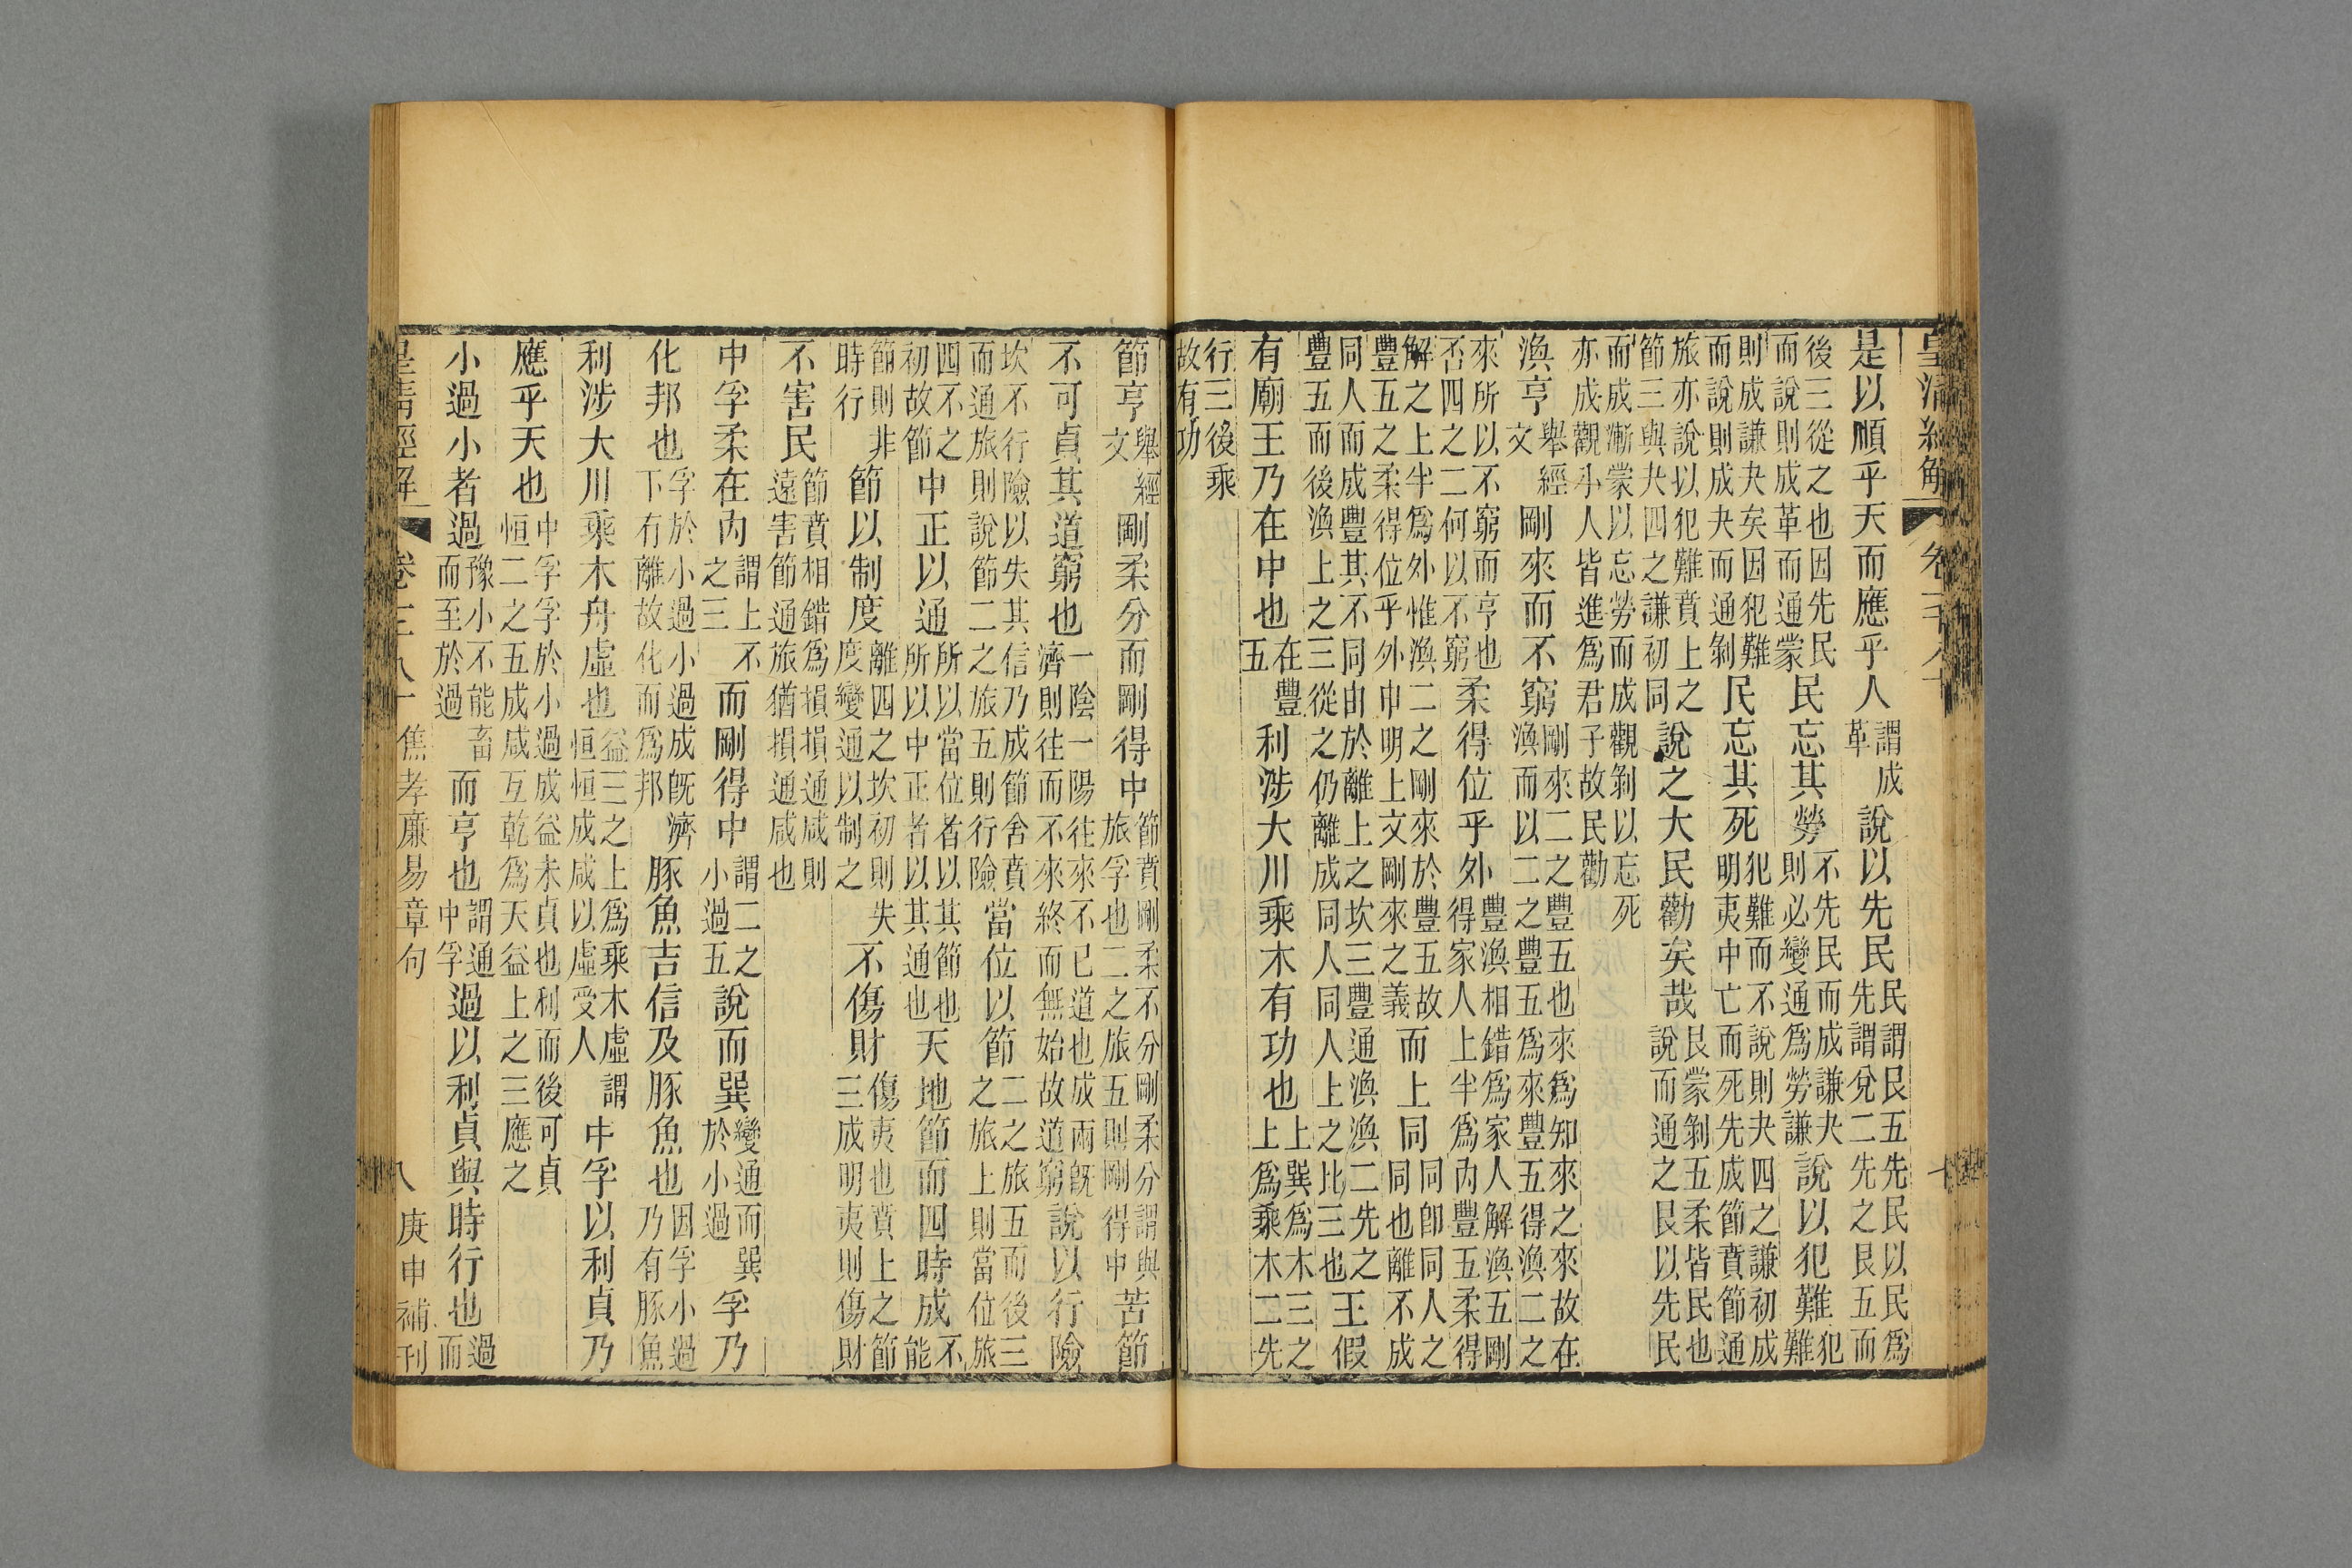 是以順乎天而應乎人謂成革說以先民民謂艮五先民以民爲先謂兌二先之艮五而
後三從之也因先民而說則成革而通蒙民忘其勞不先民而成謙夬則必變通爲勞謙說以犯難犯難
則成謙夬矣因犯難而說則成夬而通剝民忘其死犯難而不說則夬四之謙初成明夷中亡而死先成節賁節通
旅亦說以犯難賁上之節三與夬四之謙初同說之大民勸矣哉艮蒙剝五柔皆民也說而通之艮以先民
而成漸蒙以忘勞而成觀剝以忘死亦成觀小人皆進爲君子故民勸
渙亨舉經文剛來而不窮剛來二之豐五也來爲知來之來故在渙而以二之豐五爲來豐五得渙二之
來所以不窮而亨也否四之二何以不窮柔得位乎外豐渙相錯爲家人解渙五剛得家人上半爲內豐五柔得
解之上半爲外惟渙二之剛來於豐五故豐五之柔得位乎外申明上文剛來之義而上同同卽同人之同也離不成
同人而成豐其不同由於離上之坎三豐通渙渙二先之豐五而後渙上之三從之仍離成同人同人上之比三也王假
有廟王乃在中也在豐五利涉大川乘木有功也上巽爲木三之上爲乘木二先
行三後乘故有功
節亨舉經文剛柔分而剛得中節賁剛柔不分剛柔分謂與旅孚也二之旅五則剛得中苦節
不可貞其道窮也一陰一陽往來不已道也成兩旣濟則往而不來終而無始故道窮說以行險
坎不行險以失其信乃成節舍賁而通旅則說節二之旅五則行險當位以節二之旅五而後三之旅上則當位旅
四不之初故節中正以通所以當位者以其節也所以中正者以其通也天地節而四時成不能
節則非時行節以制度離四之坎初則失度變通以制之不傷財傷夷也賁上之節三成明夷則傷財
不害民節賁相錯爲損損通咸則遠害節通旅猶損通咸也
中孚柔在內謂上不之三而剛得中謂二之小過五說而巽變通而巽於小過孚乃
化邦也孚於小過小過成旣濟下有離故化而爲邦豚魚吉信及豚魚也因孚小過乃有豚魚
利涉大川乘木舟虛也益三之上爲乘木虛謂恒恒成咸以虛受人中孚以利貞乃
應乎天也中孚孚於小過成益未貞也利而後可貞恒二之五成咸互乾爲天益上之三應之
小過小者過豫小不能畜而至於過而亨也謂通中孚過以利貞與時行也過而
皇清經解 焦孝廉易章句 八 庚申補刊